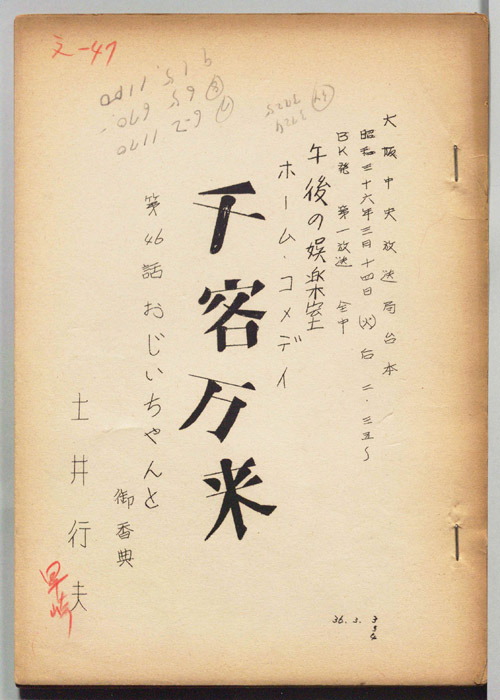 大阪中央放送局台本
昭和三十六年三月十四日(火)后二・三五〜
BK発 第一放送 全中
午後の娯楽室
ホーム・コメデイ
千客万来
第46話 おじいちゃんと
御香典
土井行夫
文-47
早崎
36.3.